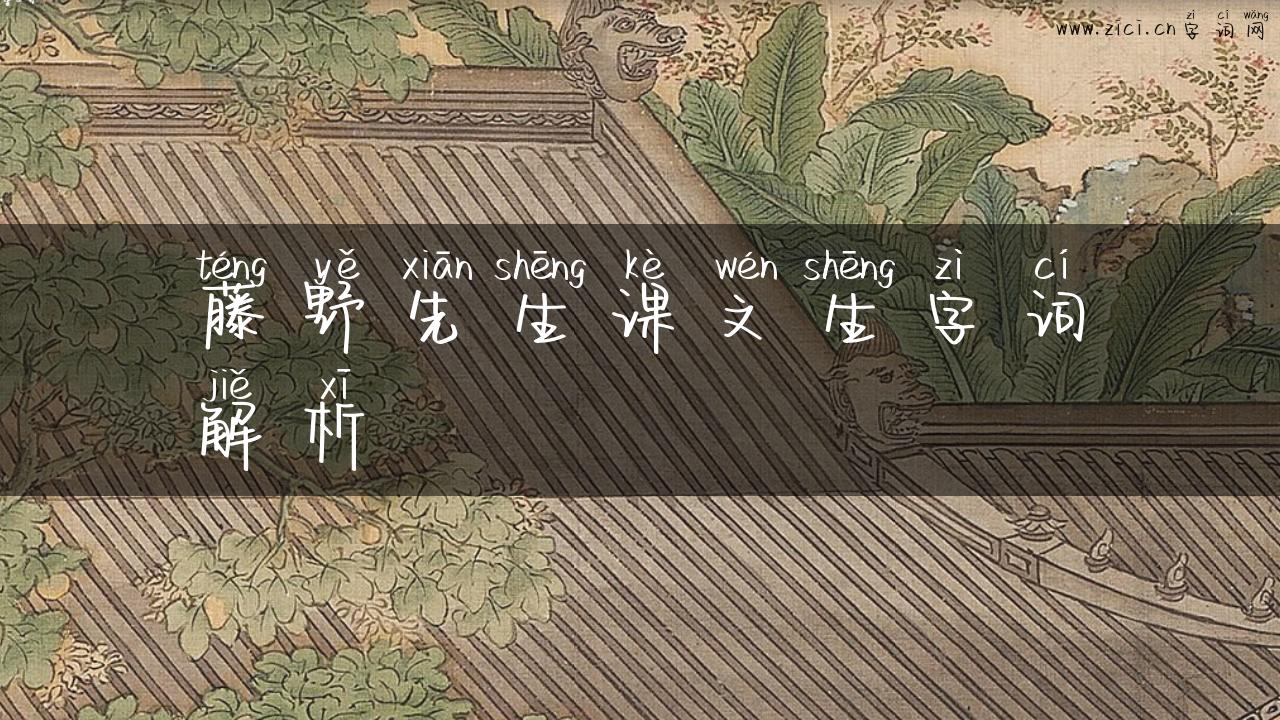 zì cí wǎng
www.zici.cn 字词网
téng yě xiān shēng kè wén shēng zì cí
藤野先生课文生字词
jiě xī
解析